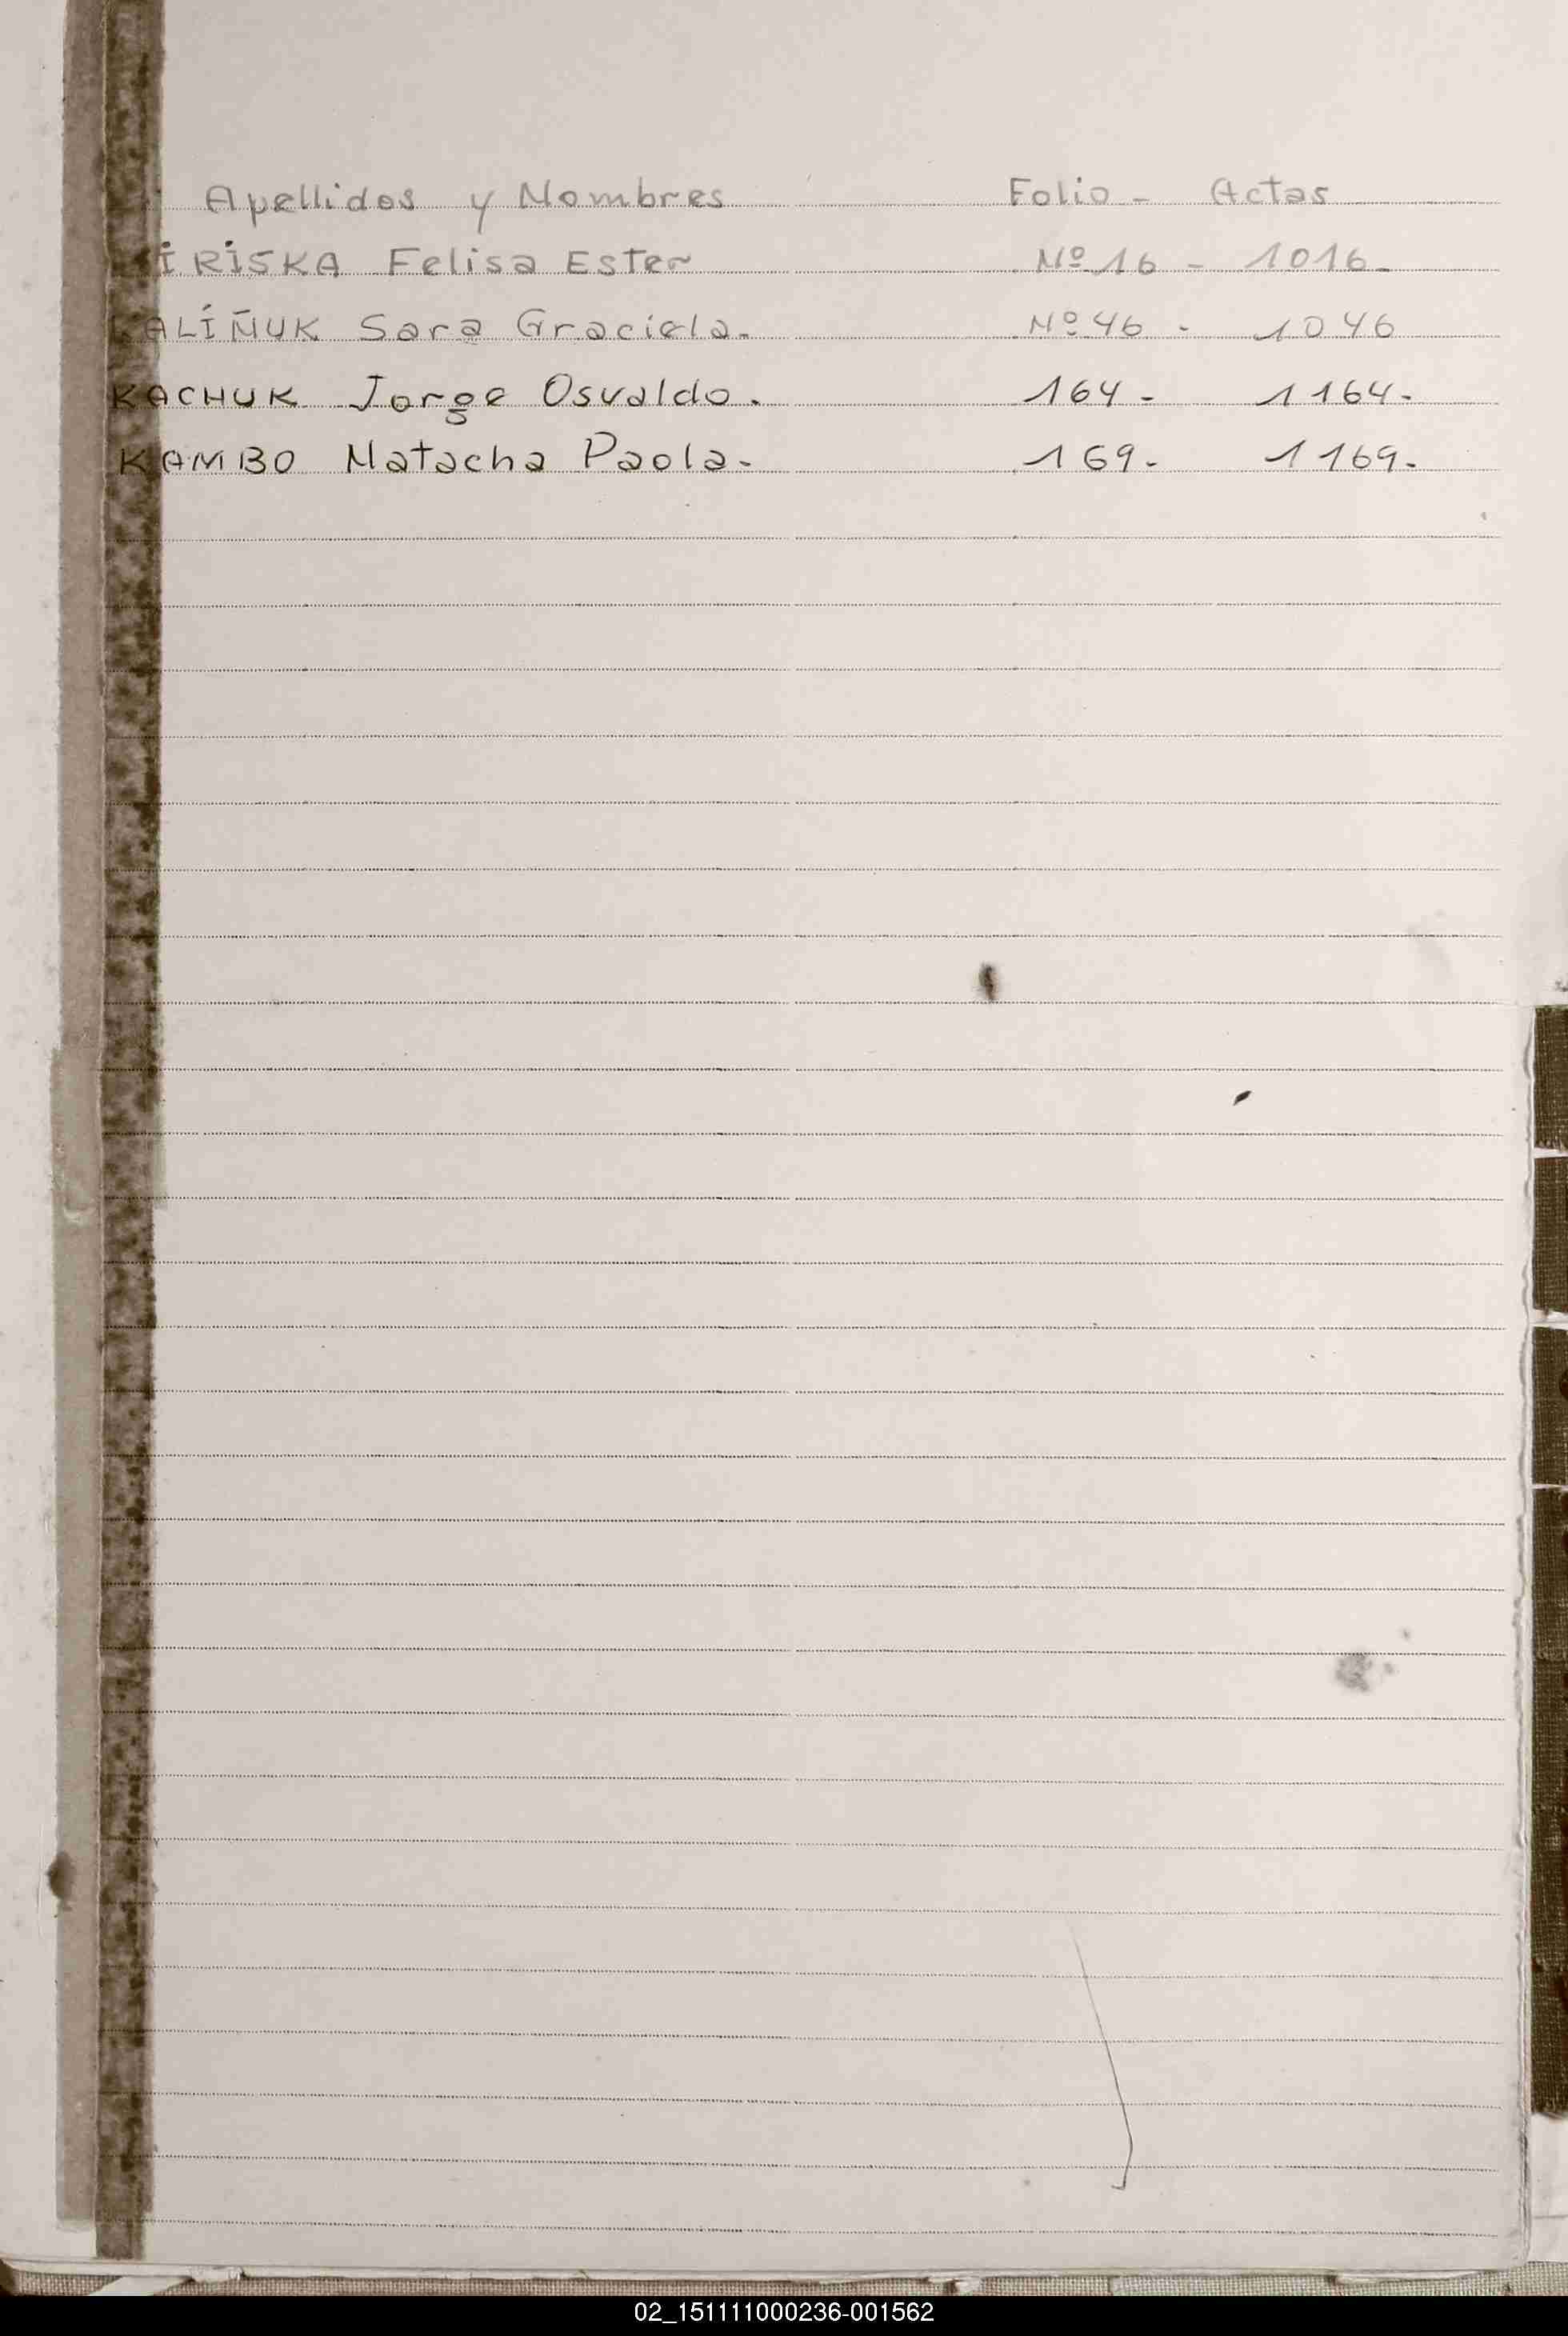 Apellidos y Nombres Folio - Actas
KIRISKA Felisa Ester Nº 16 - 1016-
KALIÑUK Sara Graciela. Nº 46 - 1046
KACHUK Jorge Osvaldo. 164- 1164-
KAMBO Natacha Paola- 169- 1169-
02_151111000236-001562